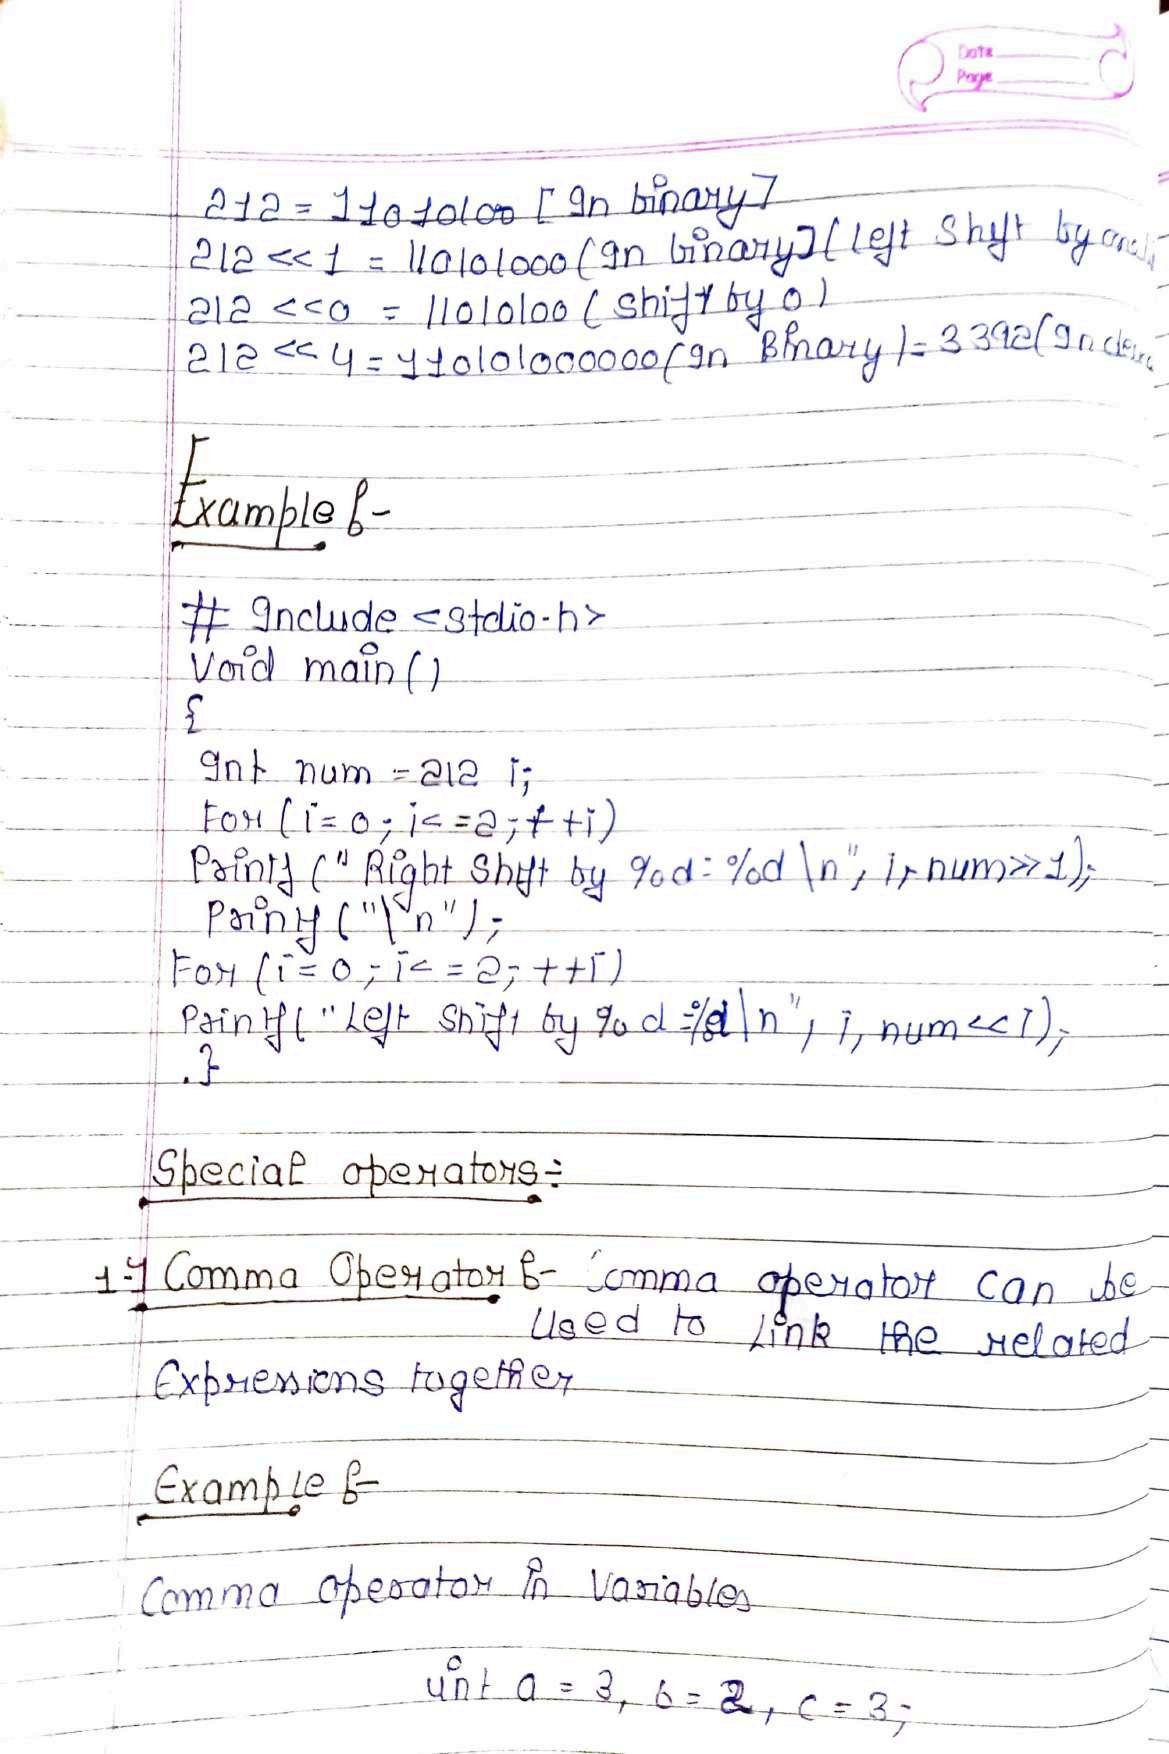 Date
Page
212 = 11010100 [In binary]
212 << 1 = 110101000 (In binary] (Left Shift by
212 <<0 = 11010100 ( Shift by 0 )
212 << 4 = 110101000000 (In Binary) = 3392 (In
Example :-
# Include <stdio.h>
Void main ()
{
Int num = 212 i;
For (i= 0 ; i<=2 ; ++i)
Printf (" Right Shift by %d: %d \n", i, num>>1);
Printf ("\n");
For (i= 0 ; i<= 2; ++i)
Printf (" Left Shift by %d =%d \n", i, num<<i);
.}
Special operators:-
1:-] Comma Operator :- Comma operator can be
Used to Link the related
Expressions together
Example :-
Comma operator in Variables
int a = 3, b = 2, c = 3;